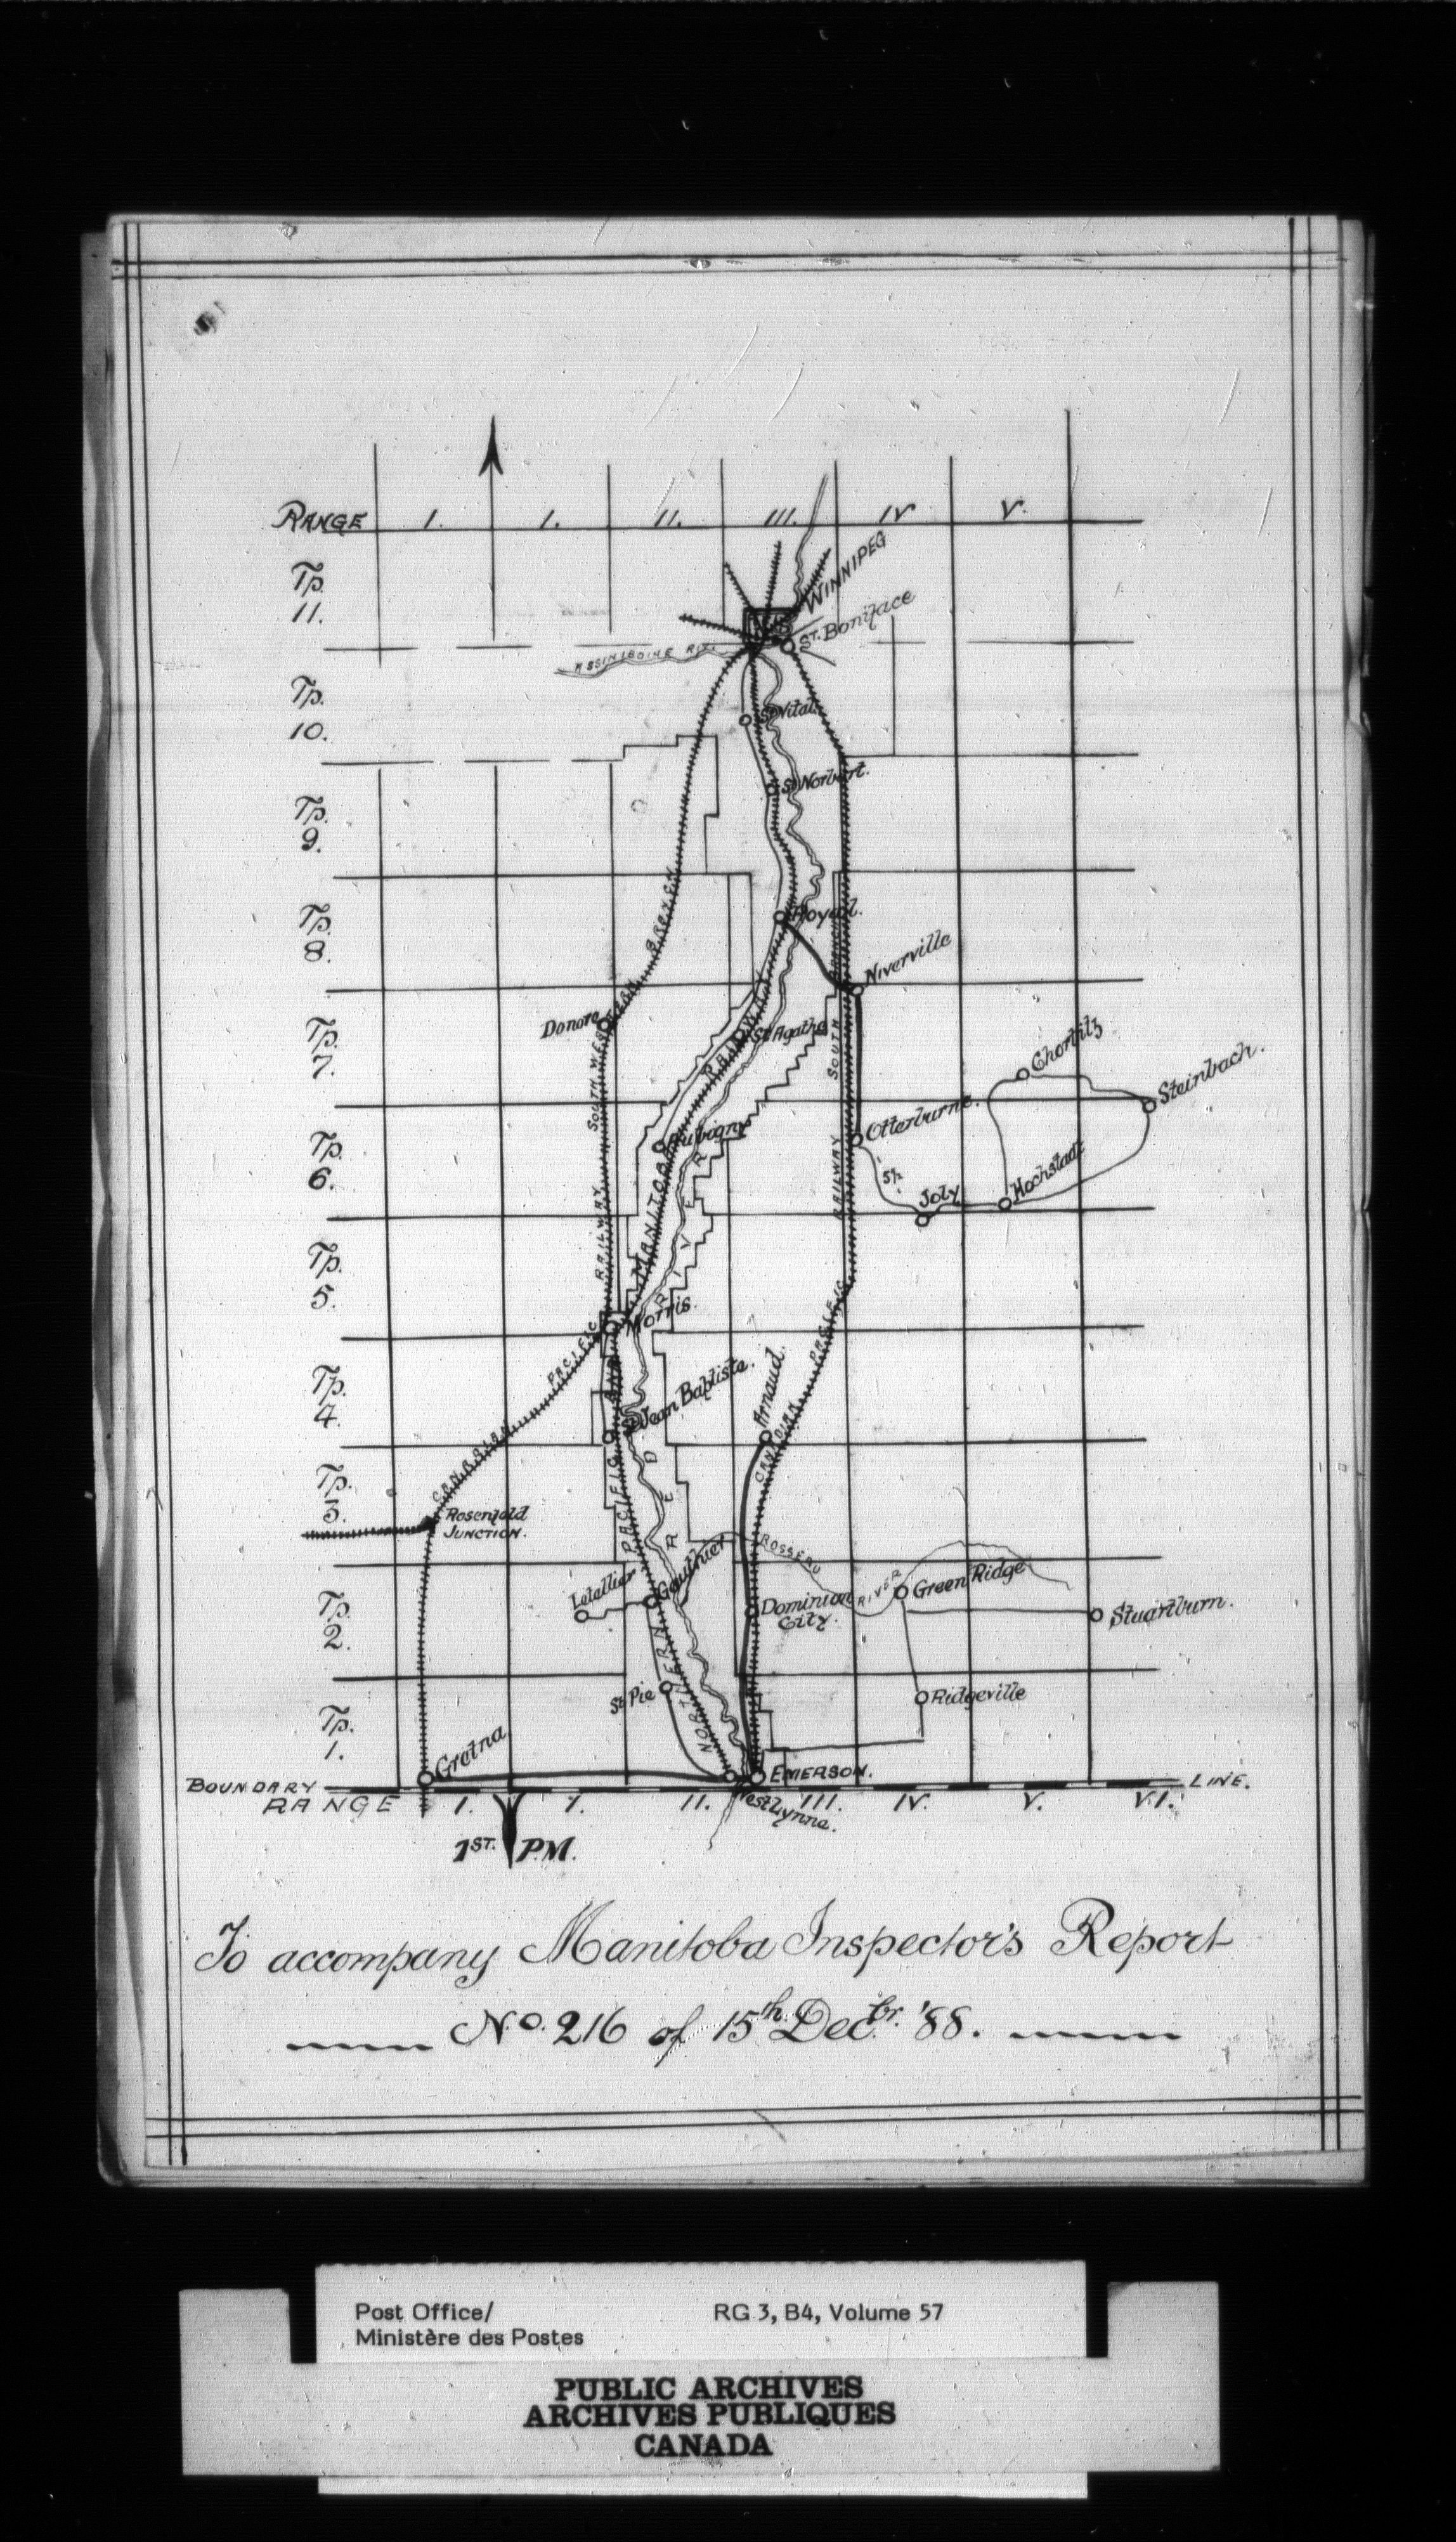 RANGE I. I. II. III. IV V.
Tp.
11.
WINNIPEG
ST. Boniface
ASSINIBOINE RIV.
Tp.
10.
St Vital.
St Norbert.
Tp.
9.
BRANCH
Tp.
8.
Royal.
BRANCH
Niverville
Tp.
7.
Donore
SOUTH WESTERN
RAILWAY
St Agathe
SOUTH
Chortitz
Steinbach.
Tp.
6.
Aubigny
Otterburne.
5½
Joly
Hochstadt
RAILWAY
MANITOBA
RAILWAY
Tp.
5.
RIVER
Morris.
PACIFIC
PACIFIC
Tp.
4.
AND
St Jean Baptiste.
Arnaud.
CANADIAN
CANADIAN
Tp.
3.
Rosenfold
JUNCTION.
PACIFIC
RED
ROSSEAU
RIVER
Tp.
2.
Letellier
Gauthier
Dominion
City.
Green Ridge
Stuartburn.
NORTHERN
St Pie
Ridgeville
Tp.
1.
Gretna
EMERSON.
West Lynne.
BOUNDARY LINE.
RANGE I. I. II. III. IV. V. VI.
1ST. P.M.
To accompany Manitoba Inspector's Report
No. 216 of 15th Decbr. '88.
Post Office/ RG 3, B4, Volume 57
Ministère des Postes
PUBLIC ARCHIVES
ARCHIVES PUBLIQUES
CANADA